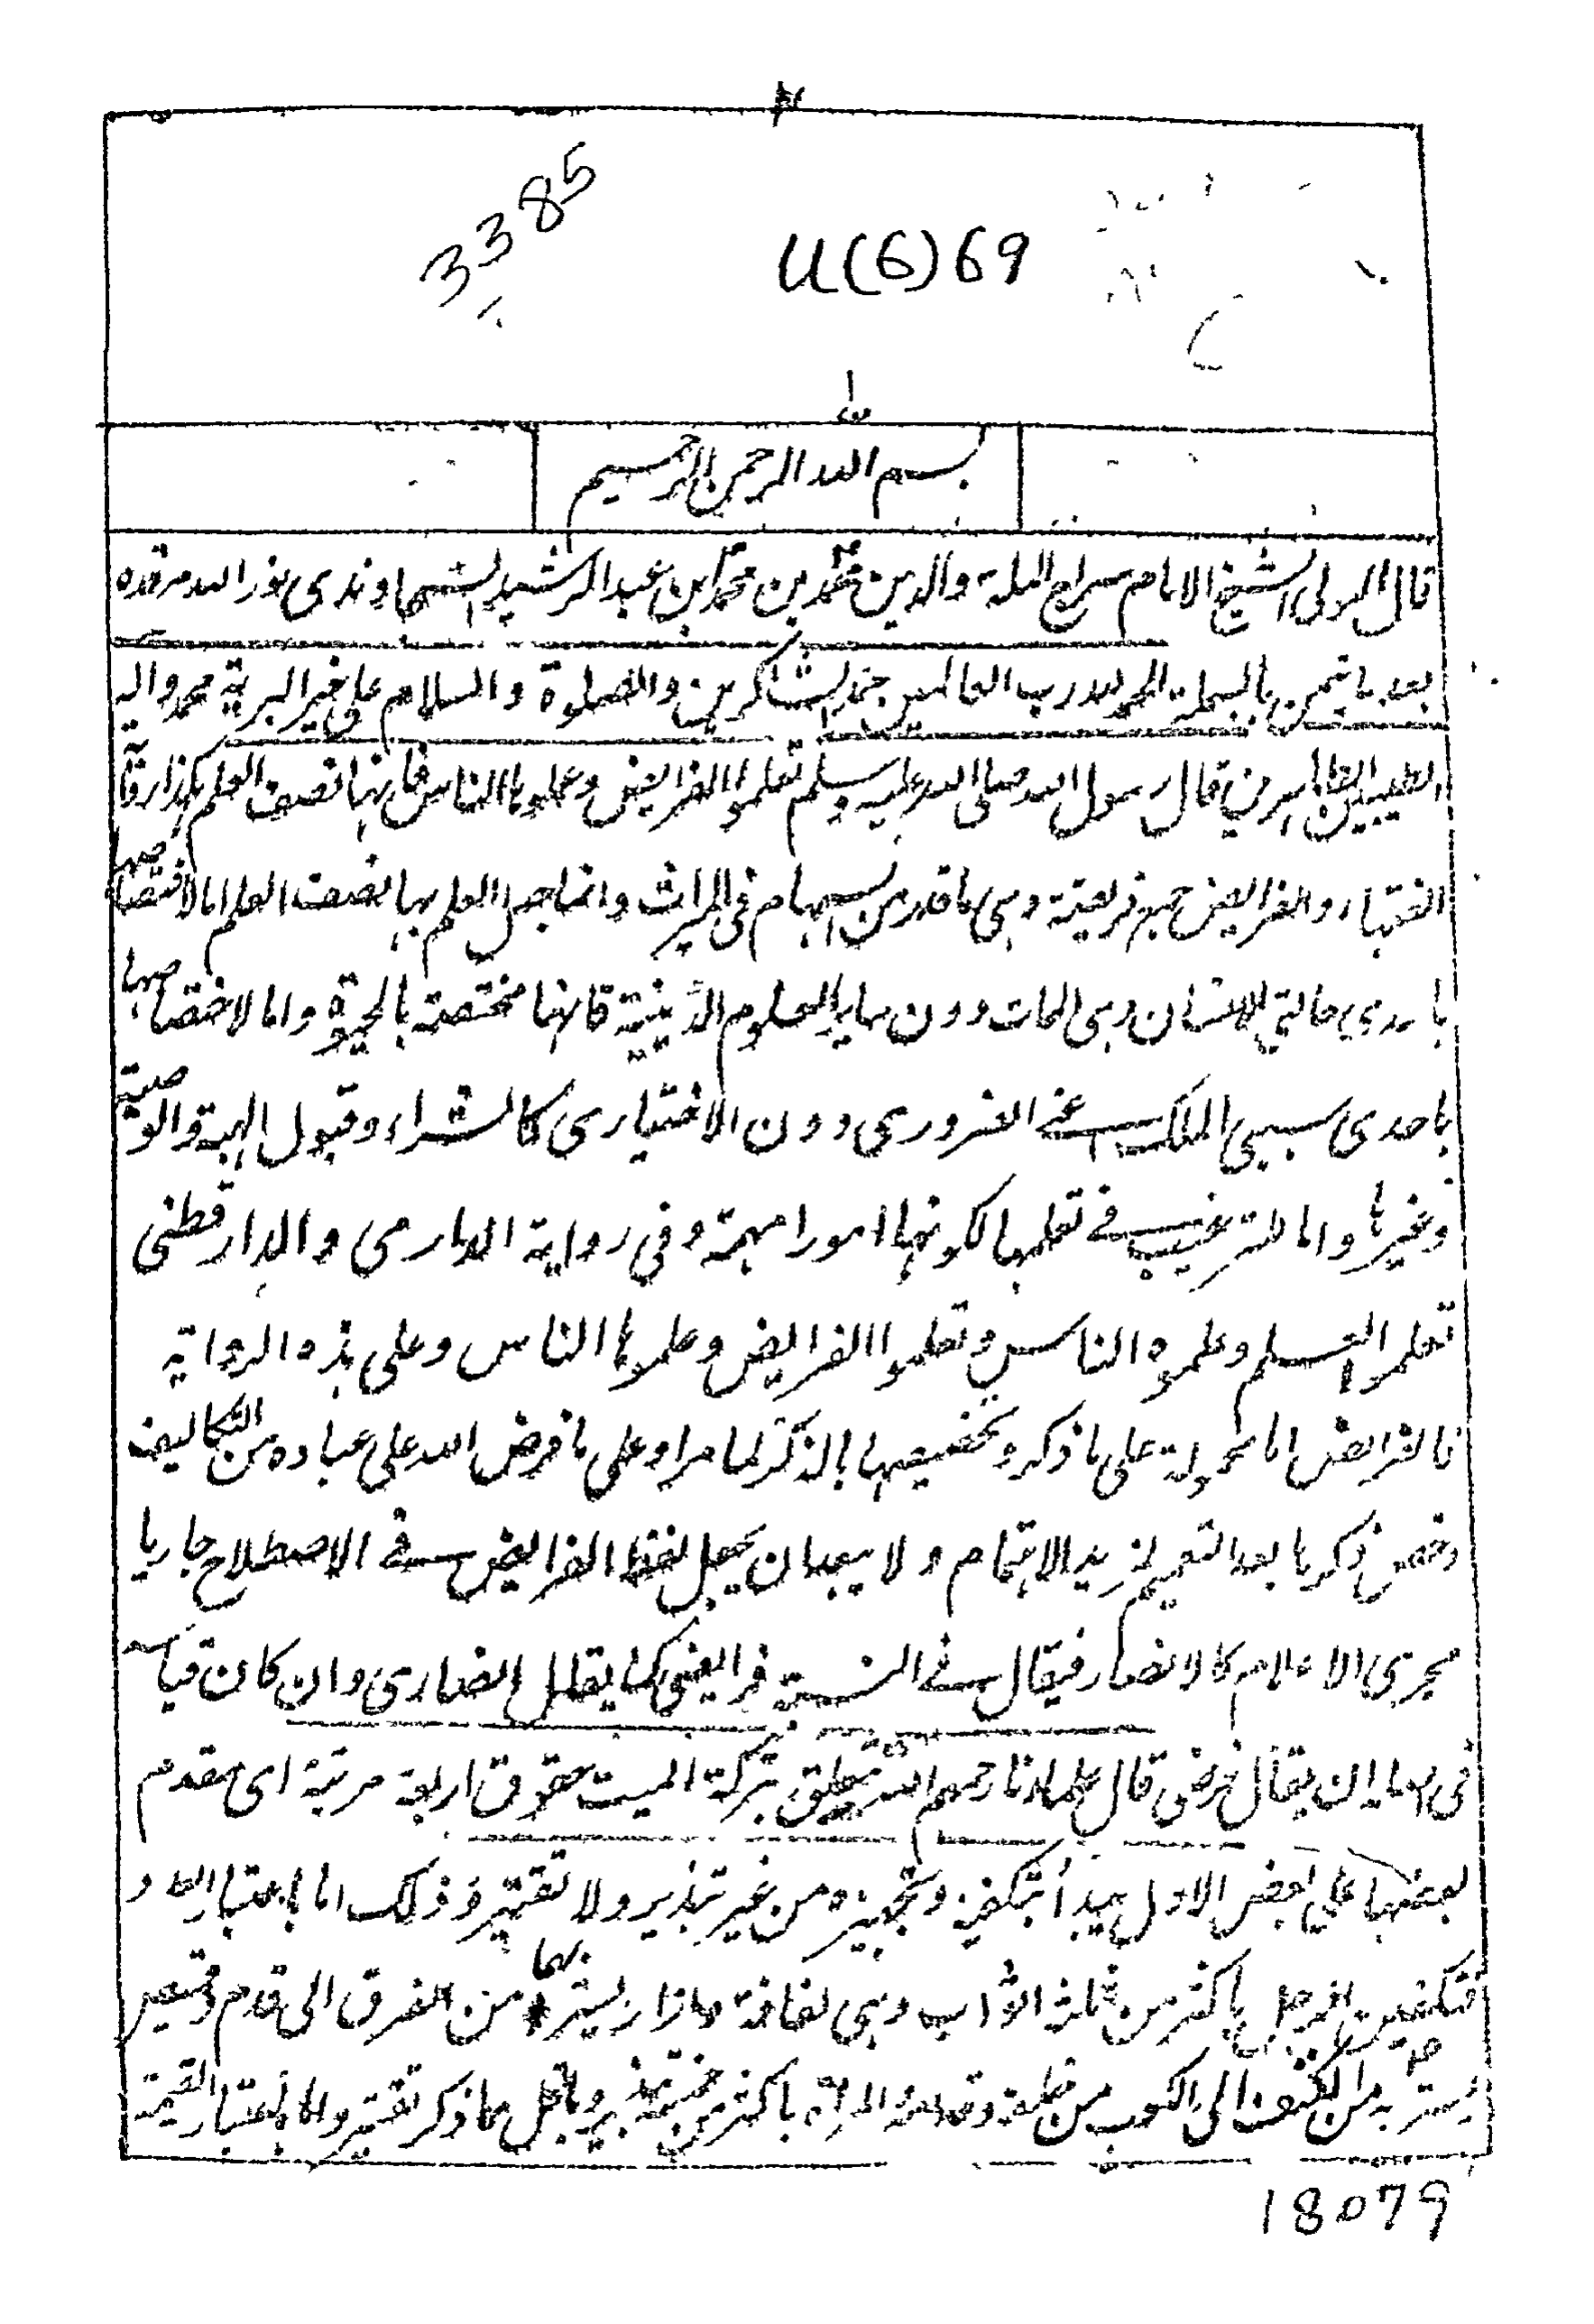 3385
U(6)69
بسم الله الرحمن الرحيم
قال المولى الشيخ الامام سراج الملة والدين محمد بن محمد بن عبد الرشيد السجاوندى نور الله مرقده
بعد ما تيمن بالبسملة الحمد لله رب العالمين حمد الشاكرين والصلوة والسلام على خير البرية محمد واله
الطيبين الطاهرين قال رسول الله صلى الله عليه وسلم تعلموا الفرايض وعلموها الناس فانها نصف العلم هكذا رواه
الفقهاء والفرايض جمع فريضة وهى ما قدر من السهام فى الميراث وانما جعل العلم بها نصف العلم اما لاختصاصها
باحدى حالتى الانسان وهى الممات دون ساير العلوم الدينية فانها مختصة بالحيوة واما لاختصاصها
باحدى سببى الملك اعنى الضرورى دون الاختيارى كالشراء وقبول الهبة والوصية
وغيرها واما للترغيب فى تعلمها لكونها امورا مهمة وفى رواية الدارمى والدارقطنى
تعلموا العلم وعلموه الناس وتعلموا الفرايض وعلموها الناس وعلى هذه الرواية
فالفرايض اما محمولة على ما ذكر وتخصيصها بالذكر لما مر او على ما فرض الله على عباده من التكاليف
وخص ذكرها بعد التعميم لمزيد الاهتمام ولا يبعد ان يجعل لفظ الفرايض فى الاصطلاح جاريا
مجرى الاعلام كالانصار فيقال فى النسبة فرايضى كما يقال انصارى وان كان قياسه
ان يقال فرضى قال علماؤنا رحمهم الله تتعلق بتركة الميت حقوق اربعة مرتبة اى مقدم
بعضها على بعض الاول يبدأ بتكفينه وتجهيزه من غير تبذير ولا تقتير وذلك اما باعتبار العدد
فتكفين الرجل باكثر من ثلثة اثواب وهى لفافة وازار يستر بهما من الفرق الى قدم وقميص
يستر به من الى الكعب من وتكفين المراة باكثر من خمسة تبذير وباقل مما ذكر تقتير واما باعتبار القيمة
18079